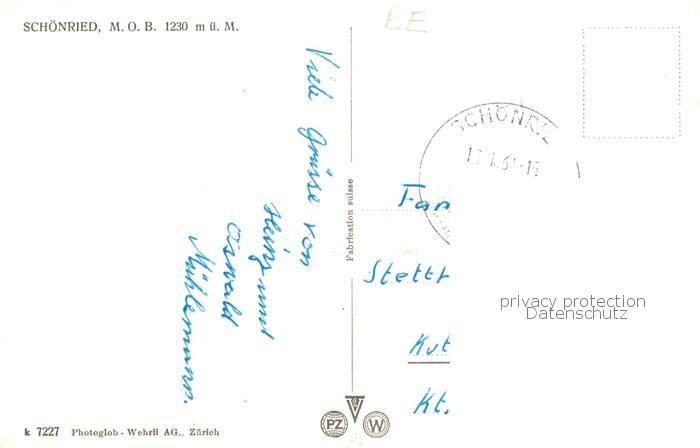 SCHÖNRIED, M. O. B. 1230 m ü. M.
BE
Viele Grüsse von
Heinz und
Oswald
Mühlemann.
Fabrication suisse
SCHÖNRIE
Fam
Stett
Kt.
privacy protection
Datenschutz
PZ
W
k 7227 Photoglob - Wehrli AG., Zürich